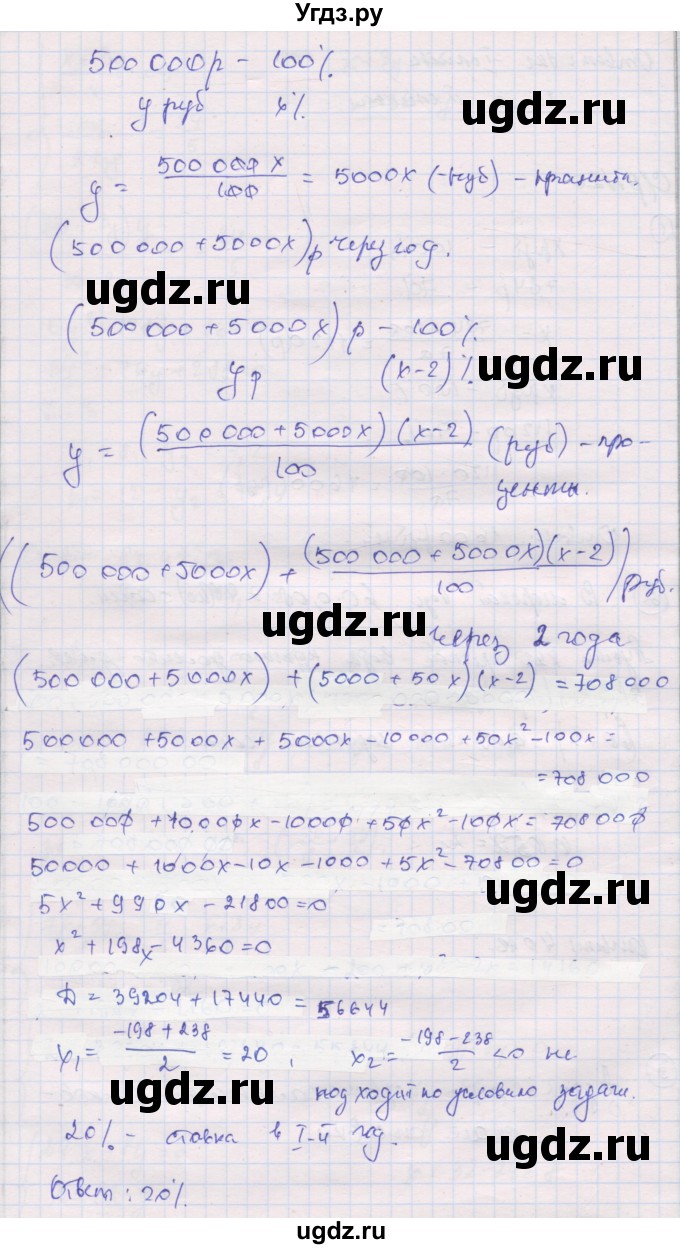 Угдз.ру
500 000р – 100%
у руб x%
ugdz.ru
y = 500 000 x / 100 = 5000x (руб)
(500 000 + 5000x) р через год.
ugdz.ru
(500 000 + 5000x) р – 100%
ugdz.ru
ур (x-2)%
y = (500 000 + 5000x)(x-2) / 100 (руб) – про-
центы.
((500 000 + 5000x) + (500 000 + 5000x)(x-2) / 100) руб.
ugdz.ru
через 2 года
(500 000 + 5000x) + (5000 + 50x)(x-2) = 708 000
500000 + 5000x + 5000x - 10000 + 50x² - 100x =
= 708 000
500 000 + 10000x - 10000 + 50x² - 100x = 708 000
50000 + 1000x - 10x - 1000 + 5x² - 70800 = 0
ugdz.ru
5x² + 990x - 21800 = 0
x² + 198x - 4360 = 0
Д = 39204 + 17440 = 56644
x₁ = -198 + 238 / 2 = 20, x₂ = -198 - 238 / 2 < 0 не
ugdz.ru
подходит по условию задачи.
20% – ставка в I-й год.
ugdz.ru
Ответ: 20%.
ugdz.ru